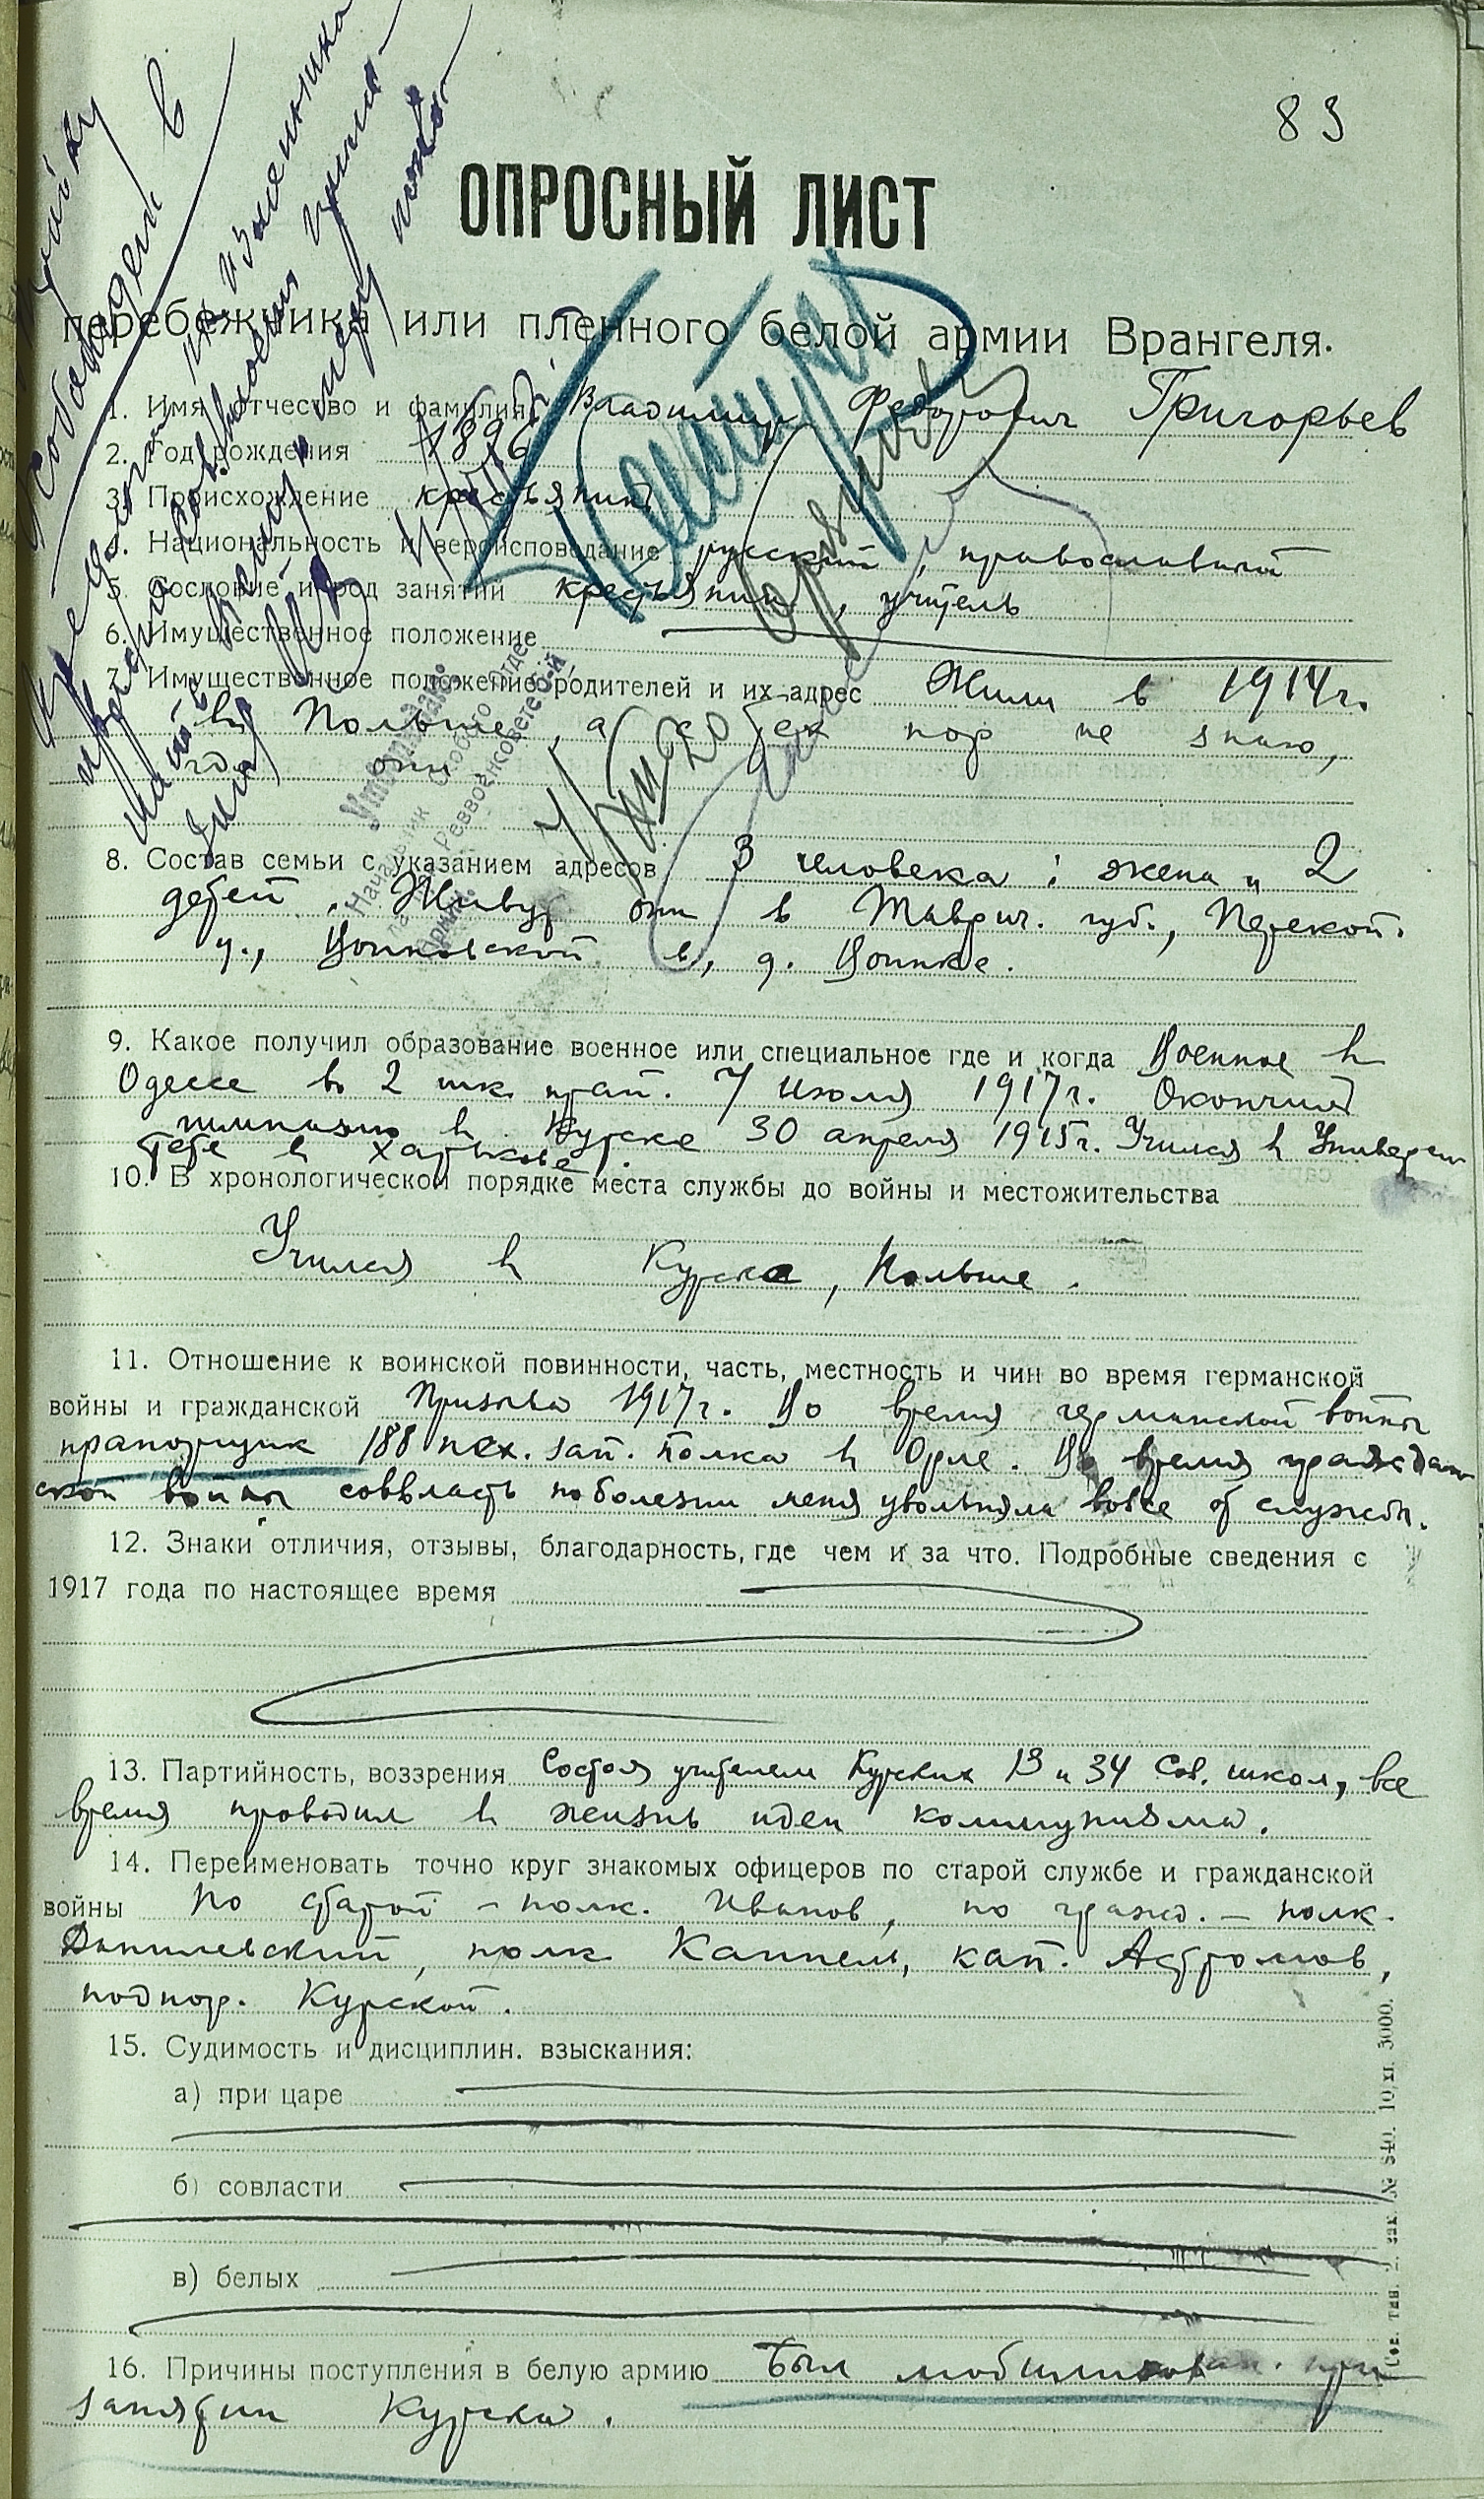 83
ОПРОСНЫЙ ЛИСТ
перебежчика или пленного белой армии Врангеля.
1. Имя отчество и фамилия Владимир Федорович Григорьев
2. Год рождения 1896
3. Происхождение крестьянин
4. Национальность и вероисповедание русский, православный
5. Сословие и род занятий крестьянин, учитель
6. Имущественное положение
7. Имущественное положение родителей и их адрес Жили в 1914 г.
в Польше, а с тех пор не знаю,
где они.
8. Состав семьи с указанием адресов 3 человека: жена и 2
детей. Живут они в Таврич. губ., Перекоп.
у., Воинковской в, д. Воинке.
9. Какое получил образование военное или специальное где и когда Военное в
Одессе во 2 шк. прап. 7 июля 1917 г. Окончил
гимназию в Курске 30 апреля 1915 г. Учился в Универси
тете в Харькове.
10. В хронологическом порядке места службы до войны и местожительства
Учился в Курске, Польше.
11. Отношение к воинской повинности, часть, местность и чин во время германской
войны и гражданской Призыва 1917 г. Во время германской войны
прапорщик 188 пех. зап. полка в Орле. Во время граждан
ской войны соввласть по болезни меня уволила вовсе от службы.
12. Знаки отличия, отзывы, благодарность, где чем и за что. Подробные сведения с
1917 года по настоящее время
13. Партийность, воззрения Состоя учителем Курских 13 и 34 Сов. школ, все
время проводил в жизнь идеи коммунизма.
14. Переименовать точно круг знакомых офицеров по старой службе и гражданской
войны По старой – полк. Иванов, по гражд. – полк.
Данилевский, полк Каппель, кап. Астромов,
подпор. Курской.
15. Судимость и дисциплин. взыскания:
а) при царе
б) совласти
в) белых
16. Причины поступления в белую армию Был мобилизован. при
занятии Курска.
Утверждаю.
Начальник Особого Отдела